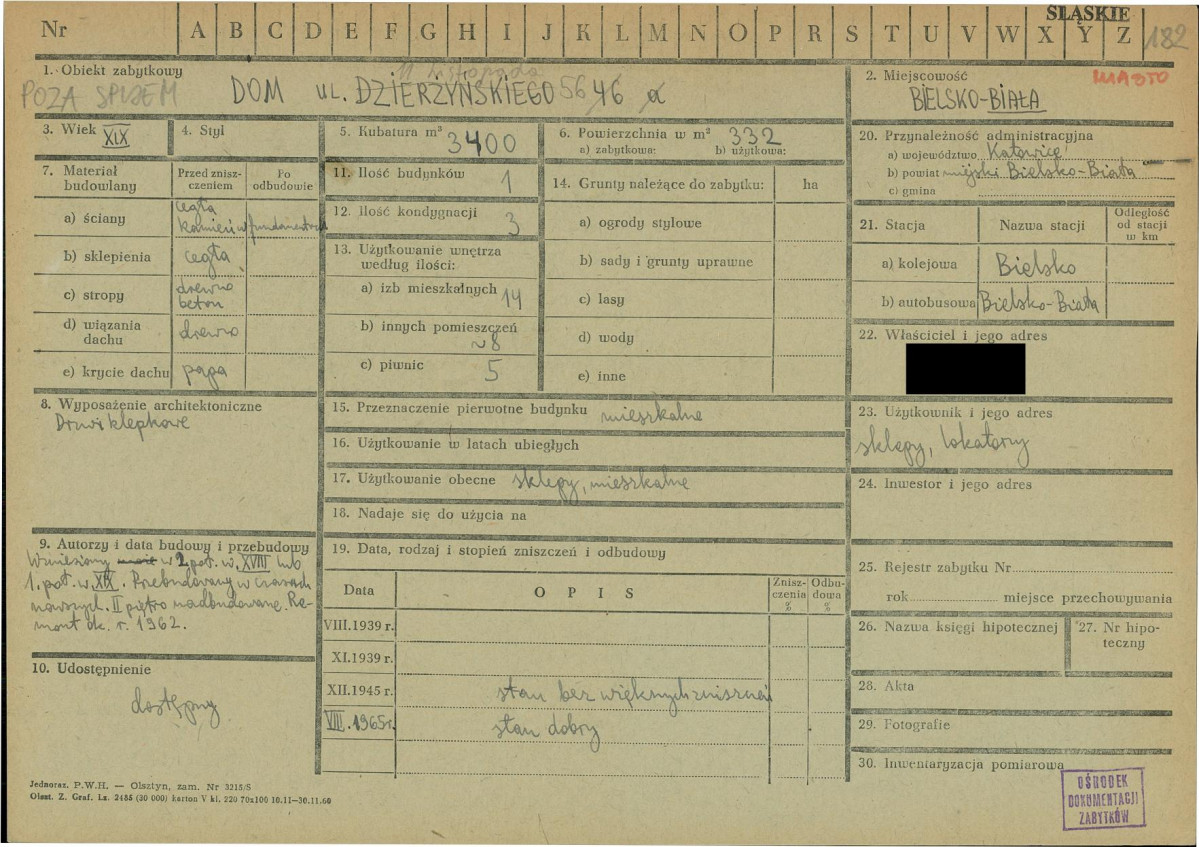 ŚLĄSKIE
Nr A B C D E F G H I J K L M N O P R S T U V W X Y Z 182
1. Obiekt zabytkowy
11 Listopada
POZA SPISEM DOM UL. DZIERŻYŃSKIEGO 56 46 a
2. Miejscowość MIASTO
BIELSKO-BIAŁA
3. Wiek XIX
4. Styl
5. Kubatura m³ 3400
6. Powierzchnia w m² 332
a) zabytkowa: b) użytkowa:
20. Przynależność administracyjna
a) województwo Katowice
b) powiat miejski Bielsko-Biała
c) gmina
7. Materiał budowlany
Przed zniszczeniem
Po odbudowie
a) ściany cegła kamień w fundamentach
b) sklepienia cegła
c) stropy drewno beton
d) wiązania dachu drewno
e) krycie dachu papa
11. Ilość budynków 1
12. Ilość kondygnacji 3
13. Użytkowanie wnętrza według ilości:
a) izb mieszkalnych 14
b) innych pomieszczeń ~8
c) piwnic 5
14. Grunty należące do zabytku: ha
a) ogrody stylowe
b) sady i grunty uprawne
c) lasy
d) wody
e) inne
21. Stacja Nazwa stacji Odległość od stacji w km
a) kolejowa Bielsko
b) autobusowa Bielsko-Biała
22. Właściciel i jego adres
8. Wyposażenie architektoniczne
Drzwi klepkowe
15. Przeznaczenie pierwotne budynku mieszkalne
16. Użytkowanie w latach ubiegłych
17. Użytkowanie obecne sklepy, mieszkalne
18. Nadaje się do użycia na
23. Użytkownik i jego adres
sklepy, lokatorzy
24. Inwestor i jego adres
9. Autorzy i data budowy i przebudowy
Wzniesiony w 2 poł. w. XVIII lub
1. poł. w. XIX. Przebudowany w czasach
nowszych. II piętro nadbudowane. Re-
mont ok. r. 1962.
10. Udostępnienie
dostępny
19. Data, rodzaj i stopień zniszczeń i odbudowy
Data OPIS Zniszczenia % Odbudowa %
VIII.1939 r.
XI.1939 r.
XII.1945 r. stan bez większych zniszczeń
VIII.1965 r. stan dobry
25. Rejestr zabytku Nr
rok miejsce przechowywania
26. Nazwa księgi hipotecznej
27. Nr hipoteczny
28. Akta
29. Fotografie
30. Inwentaryzacja pomiarowa
OŚRODEK
DOKUMENTACJI
ZABYTKÓW
Jednoraz. P.W.H. — Olsztyn, zam. Nr 3215/S
Olszt. Z. Graf. Lz. 2485 (30 000) karton V kl. 220 70x100 10.11—30.11.60